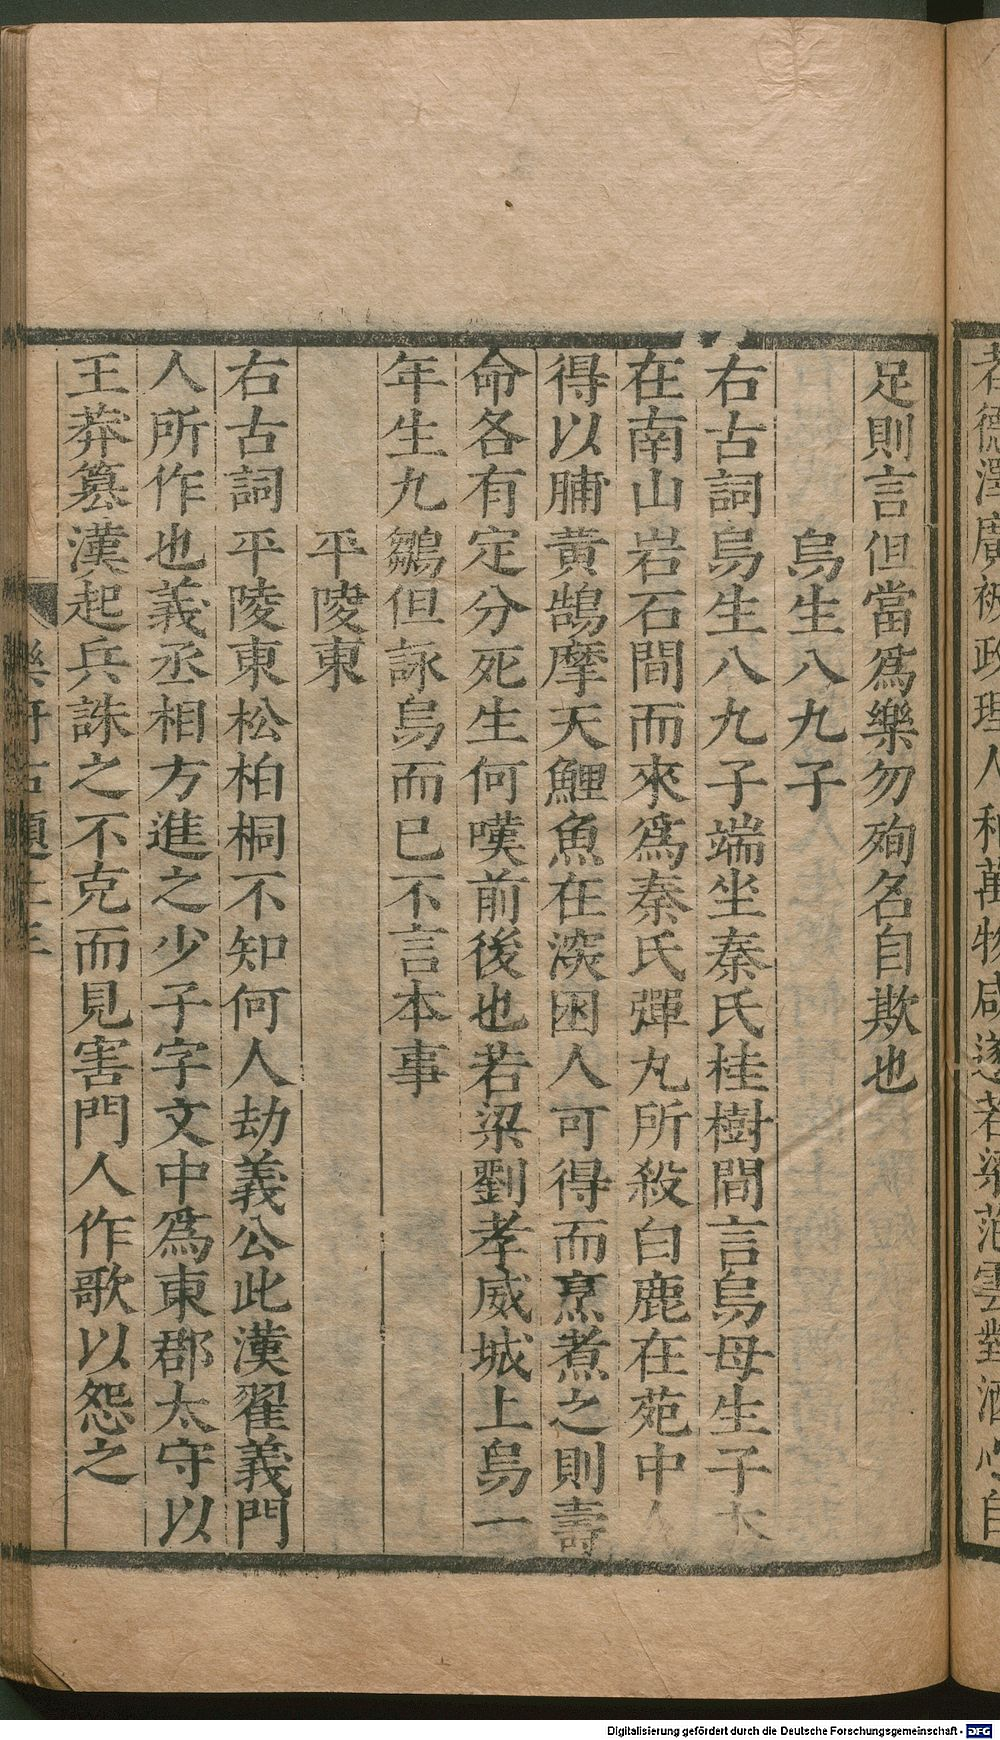 者德澤廣被政理人和萬物咸遂若梁范雲對酒心自
足則言但當爲樂勿殉名自欺也
烏生八九子
右古詞烏生八九子端坐秦氏桂樹間言烏母生子本
在南山岩石間而來爲秦氏彈丸所殺白鹿在苑中人
得以脯黃鵠摩天鯉魚在深困人可得而烹煮之則壽
命各有定分死生何嘆前後也若梁劉孝威城上烏一
年生九鶵但詠烏而已不言本事
平陵東
右古詞平陵東松柏桐不知何人劫義公此漢翟義門
人所作也義丞相方進之少子字文中爲東郡太守以
王莽簒漢起兵誅之不克而見害門人作歌以怨之
樂府古題
Digitalisierung gefördert durch die Deutsche Forschungsgemeinschaft - DFG